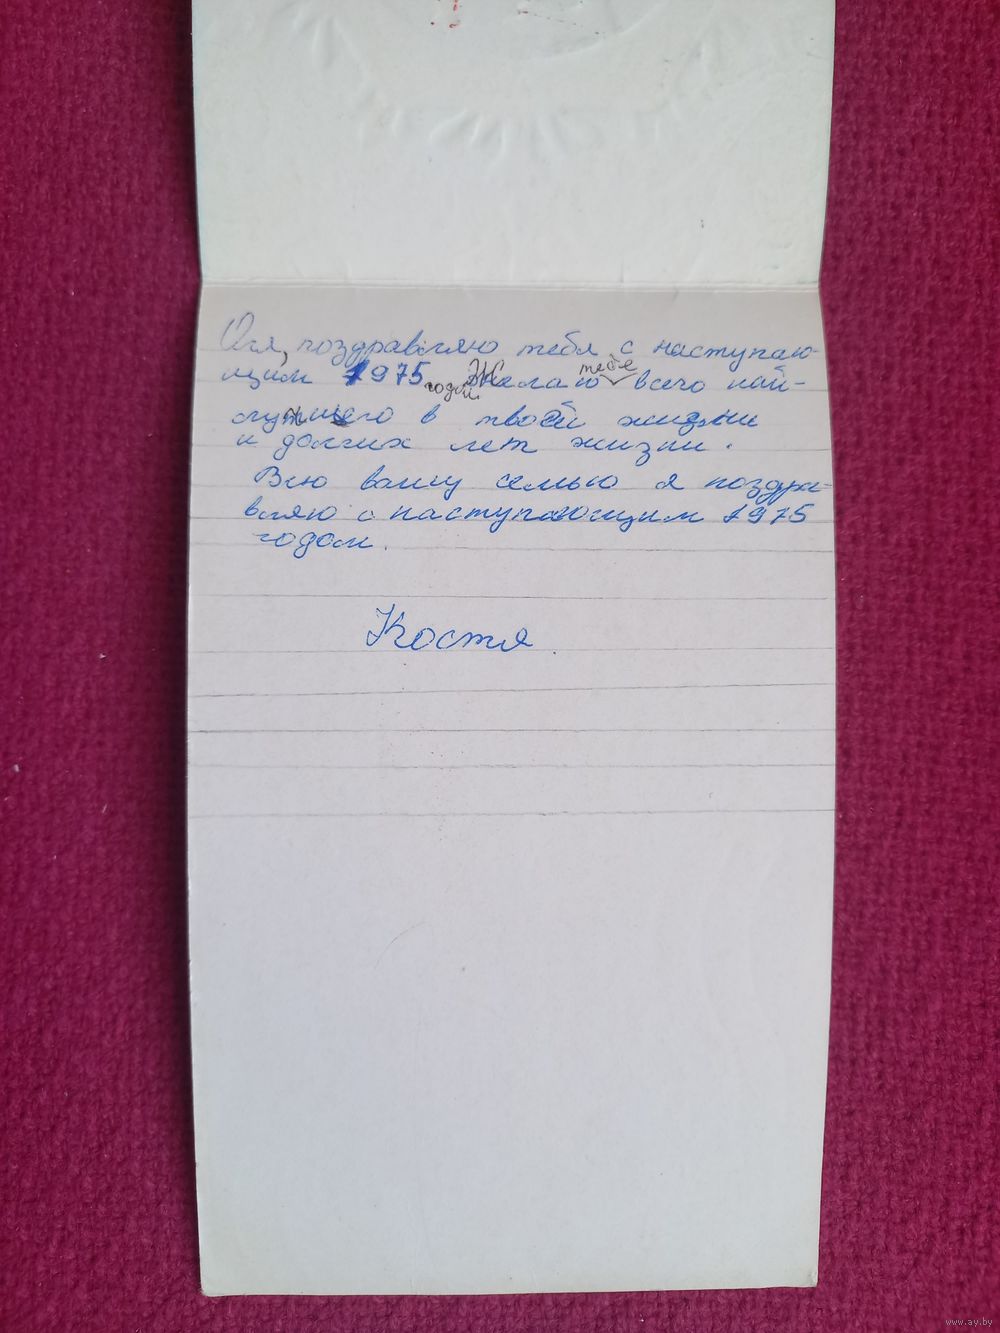 Оля, поздравляю тебя с наступаю-
щим 1975 годом. Желаю тебе всего най-
лучшего в твоей жизни
и долгих лет жизни.
Всю вашу семью я поздра-
вляю с наступающим 1975
годом.
Костя.
www.ay.by